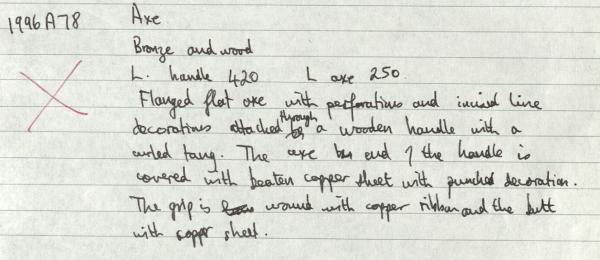 1996A78 Axe
Bronze and wood
L. handle 420 L axe 250.
Flanged flat axe with perforations and incised line
decorations attached through a wooden handle with a
curled tang. The axe end of the handle is
covered with beaten copper sheet with punched decoration.
The grip is wound with copper ribbon and the butt
with copper sheet.